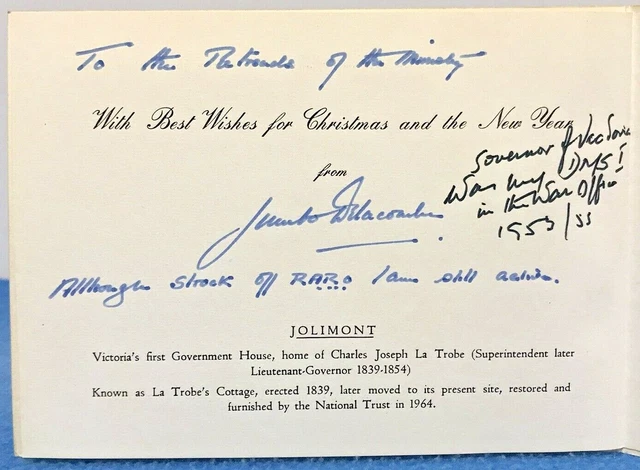 To the Retrends of the Ministry
With Best Wishes for Christmas and the New Year
from
Jumbo Delacombe
Governor of Victoria
Was my DMS!
in the War Office
1953/55
Although struck off RARO I am still active.
JOLIMONT
Victoria's first Government House, home of Charles Joseph La Trobe (Superintendent later
Lieutenant-Governor 1839-1854)
Known as La Trobe's Cottage, erected 1839, later moved to its present site, restored and
furnished by the National Trust in 1964.